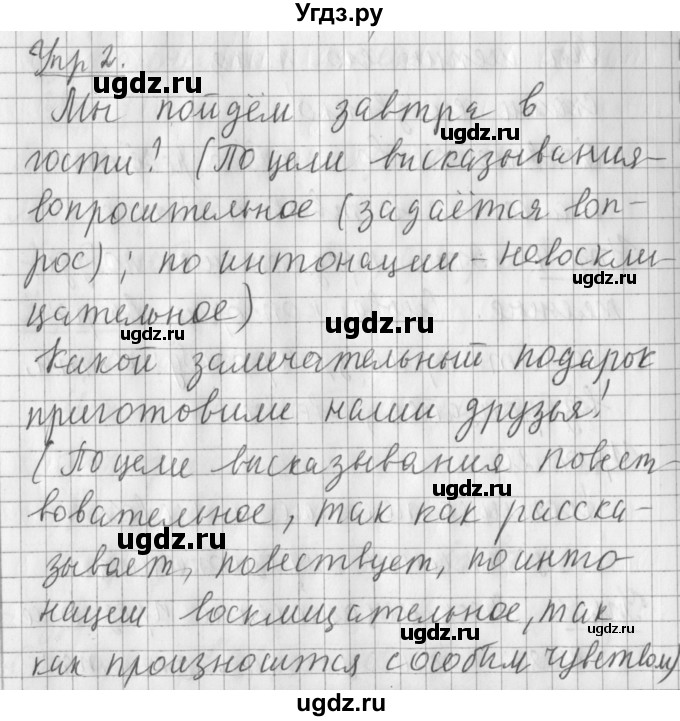 Угдз.ру
Упр 2.
Мы пойдём завтра в
гости? (По цели высказывания-
вопросительное (задаётся воп-
рос); по интонации - невоскли-
цательное)
Какой замечательный подарок
приготовили наши друзья!
(По цели высказывания повест-
вовательное, так как расска-
зывает, повествует, по инто-
нации восклицательное, так
как произносится с особым чувством)
ugdz.ru
ugdz.ru
ugdz.ru
ugdz.ru
ugdz.ru
ugdz.ru
ugdz.ru
ugdz.ru
ugdz.ru
ugdz.ru
ugdz.ru